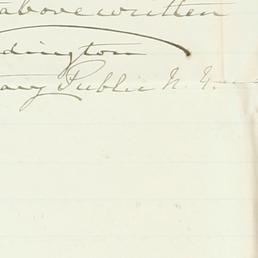 above written
dington
ary Public N. Y.